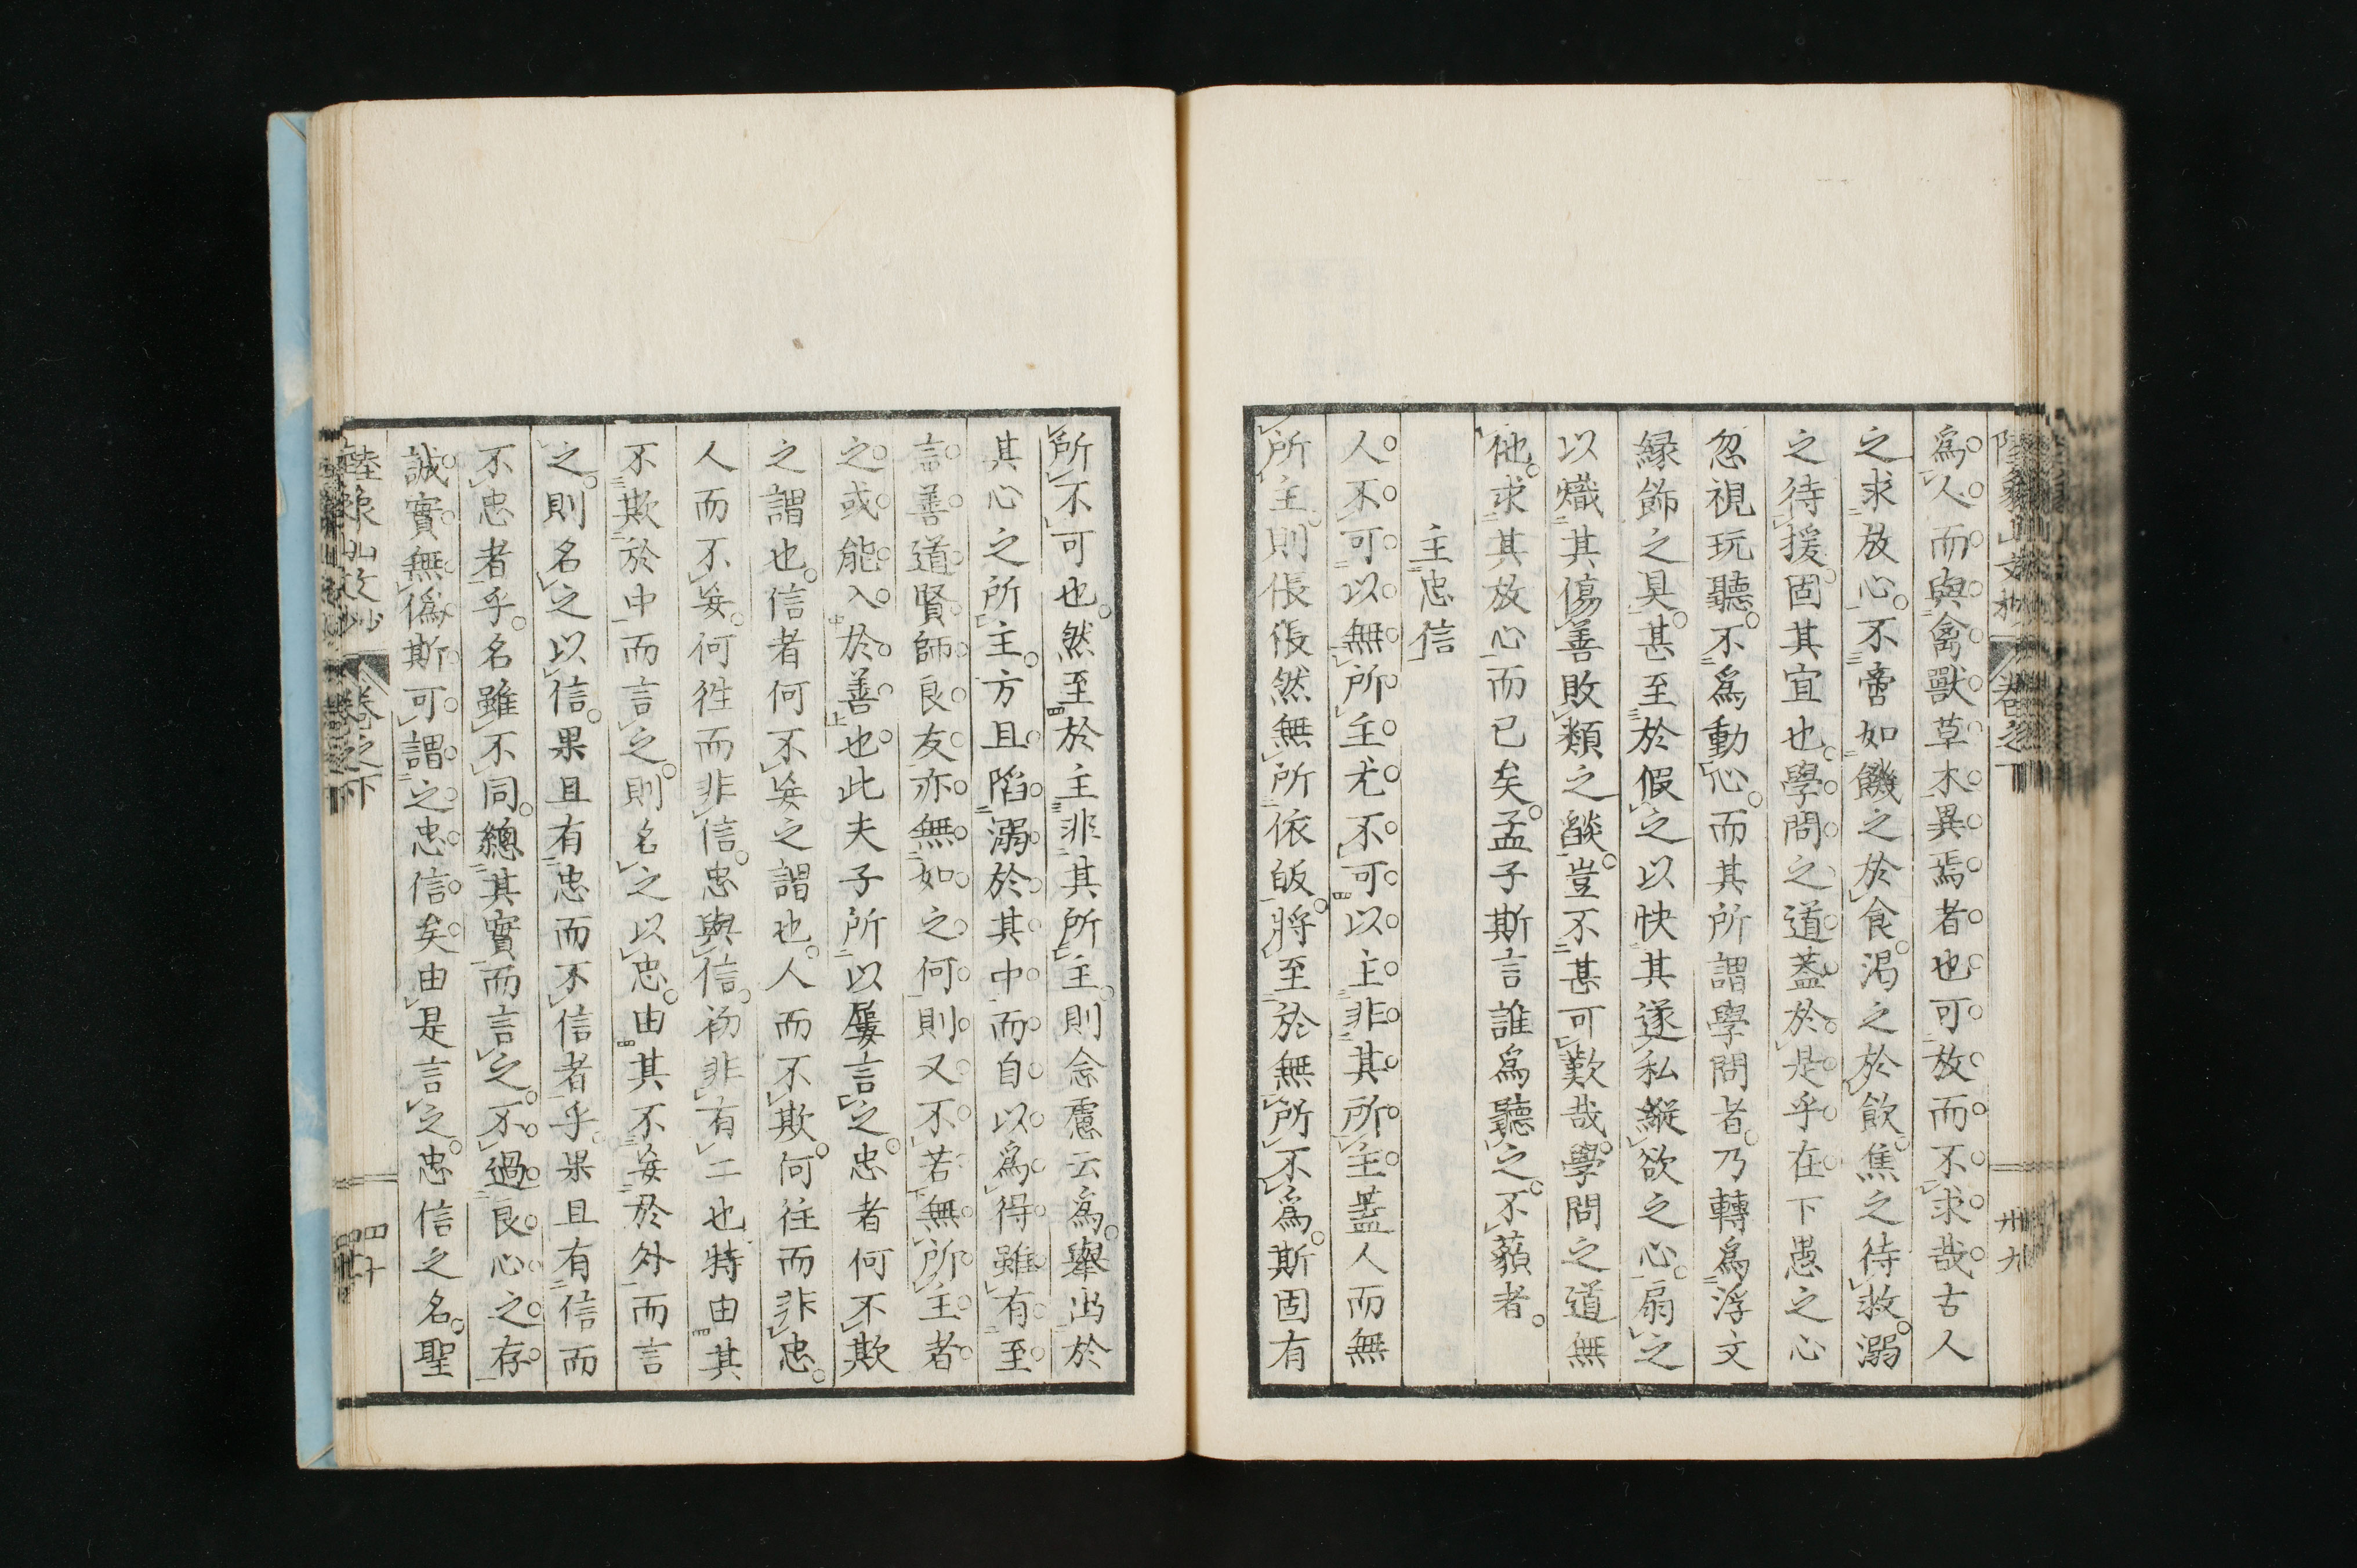 爲人而與禽獸草木異焉者也可放而不求哉古人
之求放心不啻如饑之於食渴之於飲焦之待救溺
之待援固其宜也學問之道蓋於是乎在下愚之心
忽視玩聽不爲動心而其所謂學問者乃轉爲浮文
緣飾之具甚至於假之以快其遂私縱欲之心扇之
以熾其傷善敗類之燄豈不甚可歎哉學問之道無
他求其放心而已矣孟子斯言誰爲聽之不藐者
主忠信
人不可以無所主尤不可以主非其所主蓋人而無
所主則倀倀然無所依皈將至於無所不爲斯固有
所不可也然至於主非其所主則念慮云爲舉出於
其心之所主方且陷溺於其中而自以爲得雖有至
言善道賢師良友亦無如之何則又不若無所主者
之或能入於善也此夫子所以屢言之忠者何不欺
之謂也信者何不妄之謂也人而不欺何往而非忠
人而不妄何徃而非信忠與信初非有二也特由其
不欺於中而言之則名之以忠由其不妄於外而言
之則名之以信果且有忠而不信者乎果且有信而
不忠者乎名雖不同總其實而言之不過良心之存
誠實無僞斯可謂之忠信矣由是言之忠信之名聖
陸象山文抄 卷之下 四十